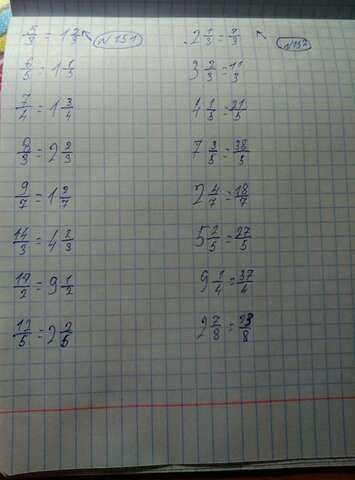 5/3 = 1 2/3 №151
6/5 = 1 1/5
7/4 = 1 3/4
8/3 = 2 2/3
9/7 = 1 2/7
14/3 = 4 2/3
19/2 = 9 1/2
12/5 = 2 2/5
2 1/3 = 7/3 №152
3 2/3 = 11/3
4 1/5 = 21/5
7 3/5 = 38/5
2 4/7 = 18/7
5 2/5 = 27/5
9 1/4 = 37/4
2 7/8 = 23/8